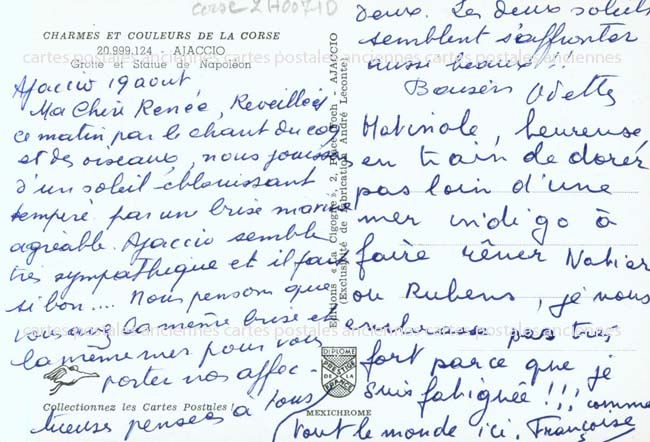 Corse 2H0071D
CHARMES ET COULEURS DE LA CORSE
20.999.124 - AJACCIO
Grotte et Statue de Napoléon
Ajaccio 19 aout
Ma Chère Renée, Reveillées
ce matin par le chant du coq
et des oiseaux, nous jouissons
d'un soleil éblouissant
tempéré par une brise marine
agréable. Ajaccio semble
très sympathique et il fait
si bon.... Nous pensons que
vous avez la même brise et
la même mer pour vous
porter nos affec-
tueuses pensées à tous
deux. Les deux soleils
semblent s'affronter
aussi beaux!!
Baisers Odette
Matinale, heureuse
en train de dorer
pas loin d'une
mer indigo à
faire rêver
ou Rubens, je vous
embrasse pas trop
fort parce que je
suis fatiguée!!! comme
tout le monde ici. Françoise
Editions « La Cigogne », 2, Place Foch - AJACCIO
(Exclusivité de Fabrication André Leconte)
DIPLOME
PRESTIGE
DE LA
FRANCE
MEXICHROME
Collectionnez les Cartes Postales
cartes postales anciennes cartes postales anciennes cartes postales anciennes
cartes postales anciennes cartes postales anciennes cartes postales anciennes